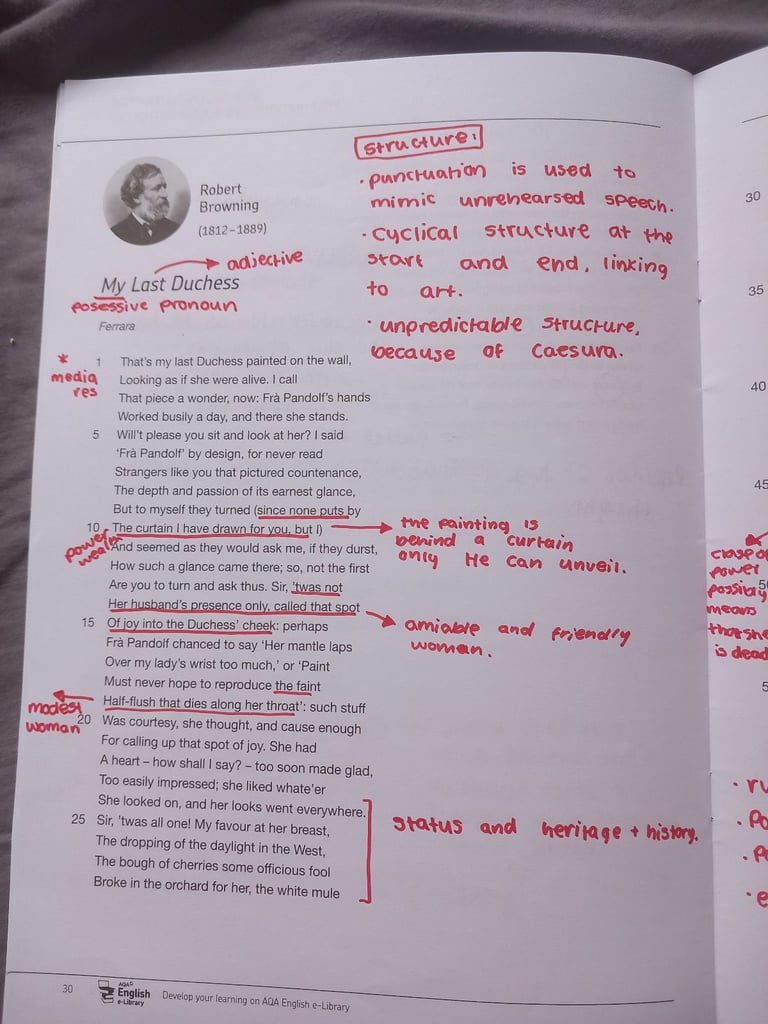 structure:
• punctuation is used to
mimic unrehearsed speech.
• cyclical structure at the
start and end, linking
to art.
• unpredictable structure,
because of caesura.
Robert
Browning
(1812–1889)
adjective
My Last Duchess
posessive pronoun
Ferrara
* media res
1 That's my last Duchess painted on the wall,
Looking as if she were alive. I call
That piece a wonder, now: Frà Pandolf's hands
Worked busily a day, and there she stands.
5 Will't please you sit and look at her? I said
'Frà Pandolf' by design, for never read
Strangers like you that pictured countenance,
The depth and passion of its earnest glance,
But to myself they turned (since none puts by
10 The curtain I have drawn for you, but I)
And seemed as they would ask me, if they durst,
How such a glance came there; so, not the first
Are you to turn and ask thus. Sir, 'twas not
Her husband's presence only, called that spot
15 Of joy into the Duchess' cheek: perhaps
Frà Pandolf chanced to say 'Her mantle laps
Over my lady's wrist too much,' or 'Paint
Must never hope to reproduce the faint
Half-flush that dies along her throat': such stuff
20 Was courtesy, she thought, and cause enough
For calling up that spot of joy. She had
A heart – how shall I say? – too soon made glad,
Too easily impressed; she liked whate'er
She looked on, and her looks went everywhere.
25 Sir, 'twas all one! My favour at her breast,
The dropping of the daylight in the West,
The bough of cherries some officious fool
Broke in the orchard for her, the white mule
power
wealth
the painting is
behind a curtain
only He can unveil.
amiable and friendly
woman.
modest
woman
status and heritage + history.
30
35
40
45
power
possibly
means
that she
is dead
30
AQA
English
e-Library
Develop your learning on AQA English e-Library